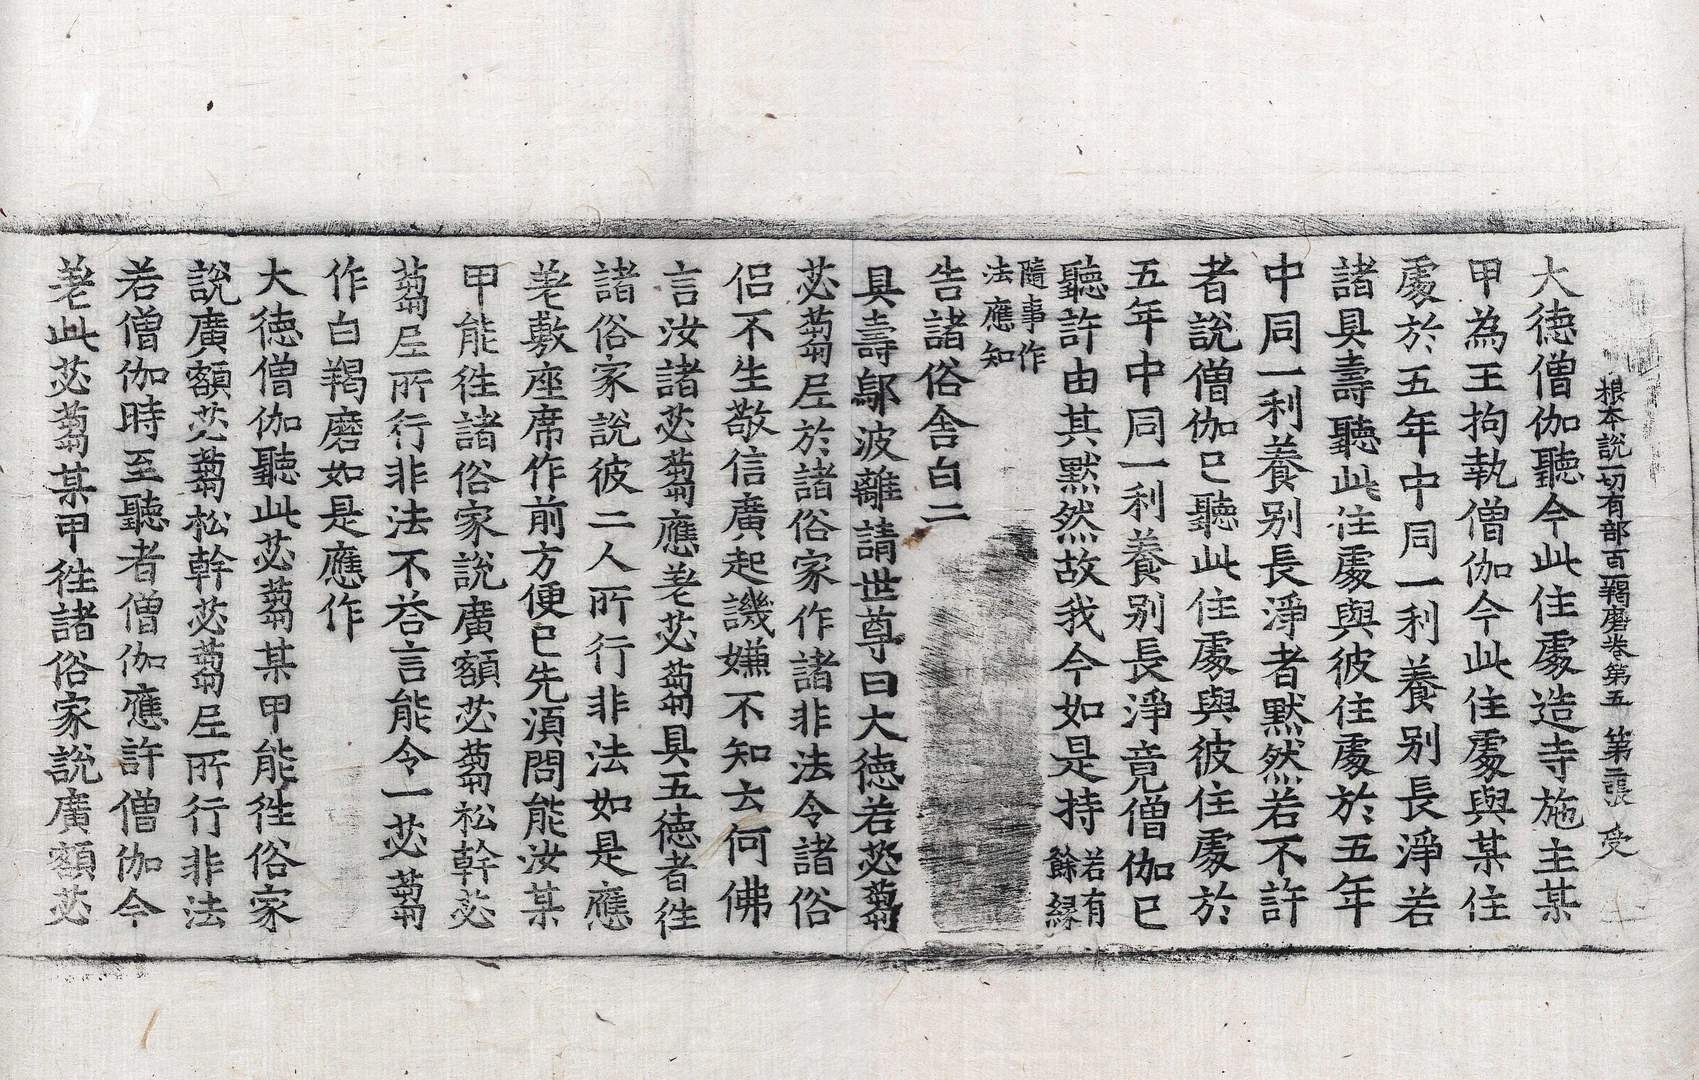 根本說一切有部百一羯磨卷第五 第二張 受
大德僧伽聽今此住處造寺施主某
甲為王拘執僧伽今此住處與某住
處於五年中同一利養別長淨若
諸具壽聽此住處與彼住處於五年
中同一利養別長淨者默然若不許
者說僧伽已聽此住處與彼住處於
五年中同一利養別長淨竟僧伽已
聽許由其默然故我今如是持 若有餘緣
隨事作法應知
告諸俗舍白二
具壽鄔波離請世尊曰大德若苾蒭
苾蒭尼於諸俗家作諸非法令諸俗
侶不生敬信廣起譏嫌不知云何佛
言汝諸苾蒭應差苾蒭具五德者往
諸俗家說彼二人所行非法如是應
差敷座席作前方便已先須問能汝某
甲能往諸俗家說廣額苾蒭松幹苾
蒭尼所行非法不答言能令一苾蒭
作白羯磨如是應作
大德僧伽聽此苾蒭某甲能往俗家
說廣額苾蒭松幹苾蒭尼所行非法
若僧伽時至聽者僧伽應許僧伽今
差此苾蒭某甲往諸俗家說廣額苾